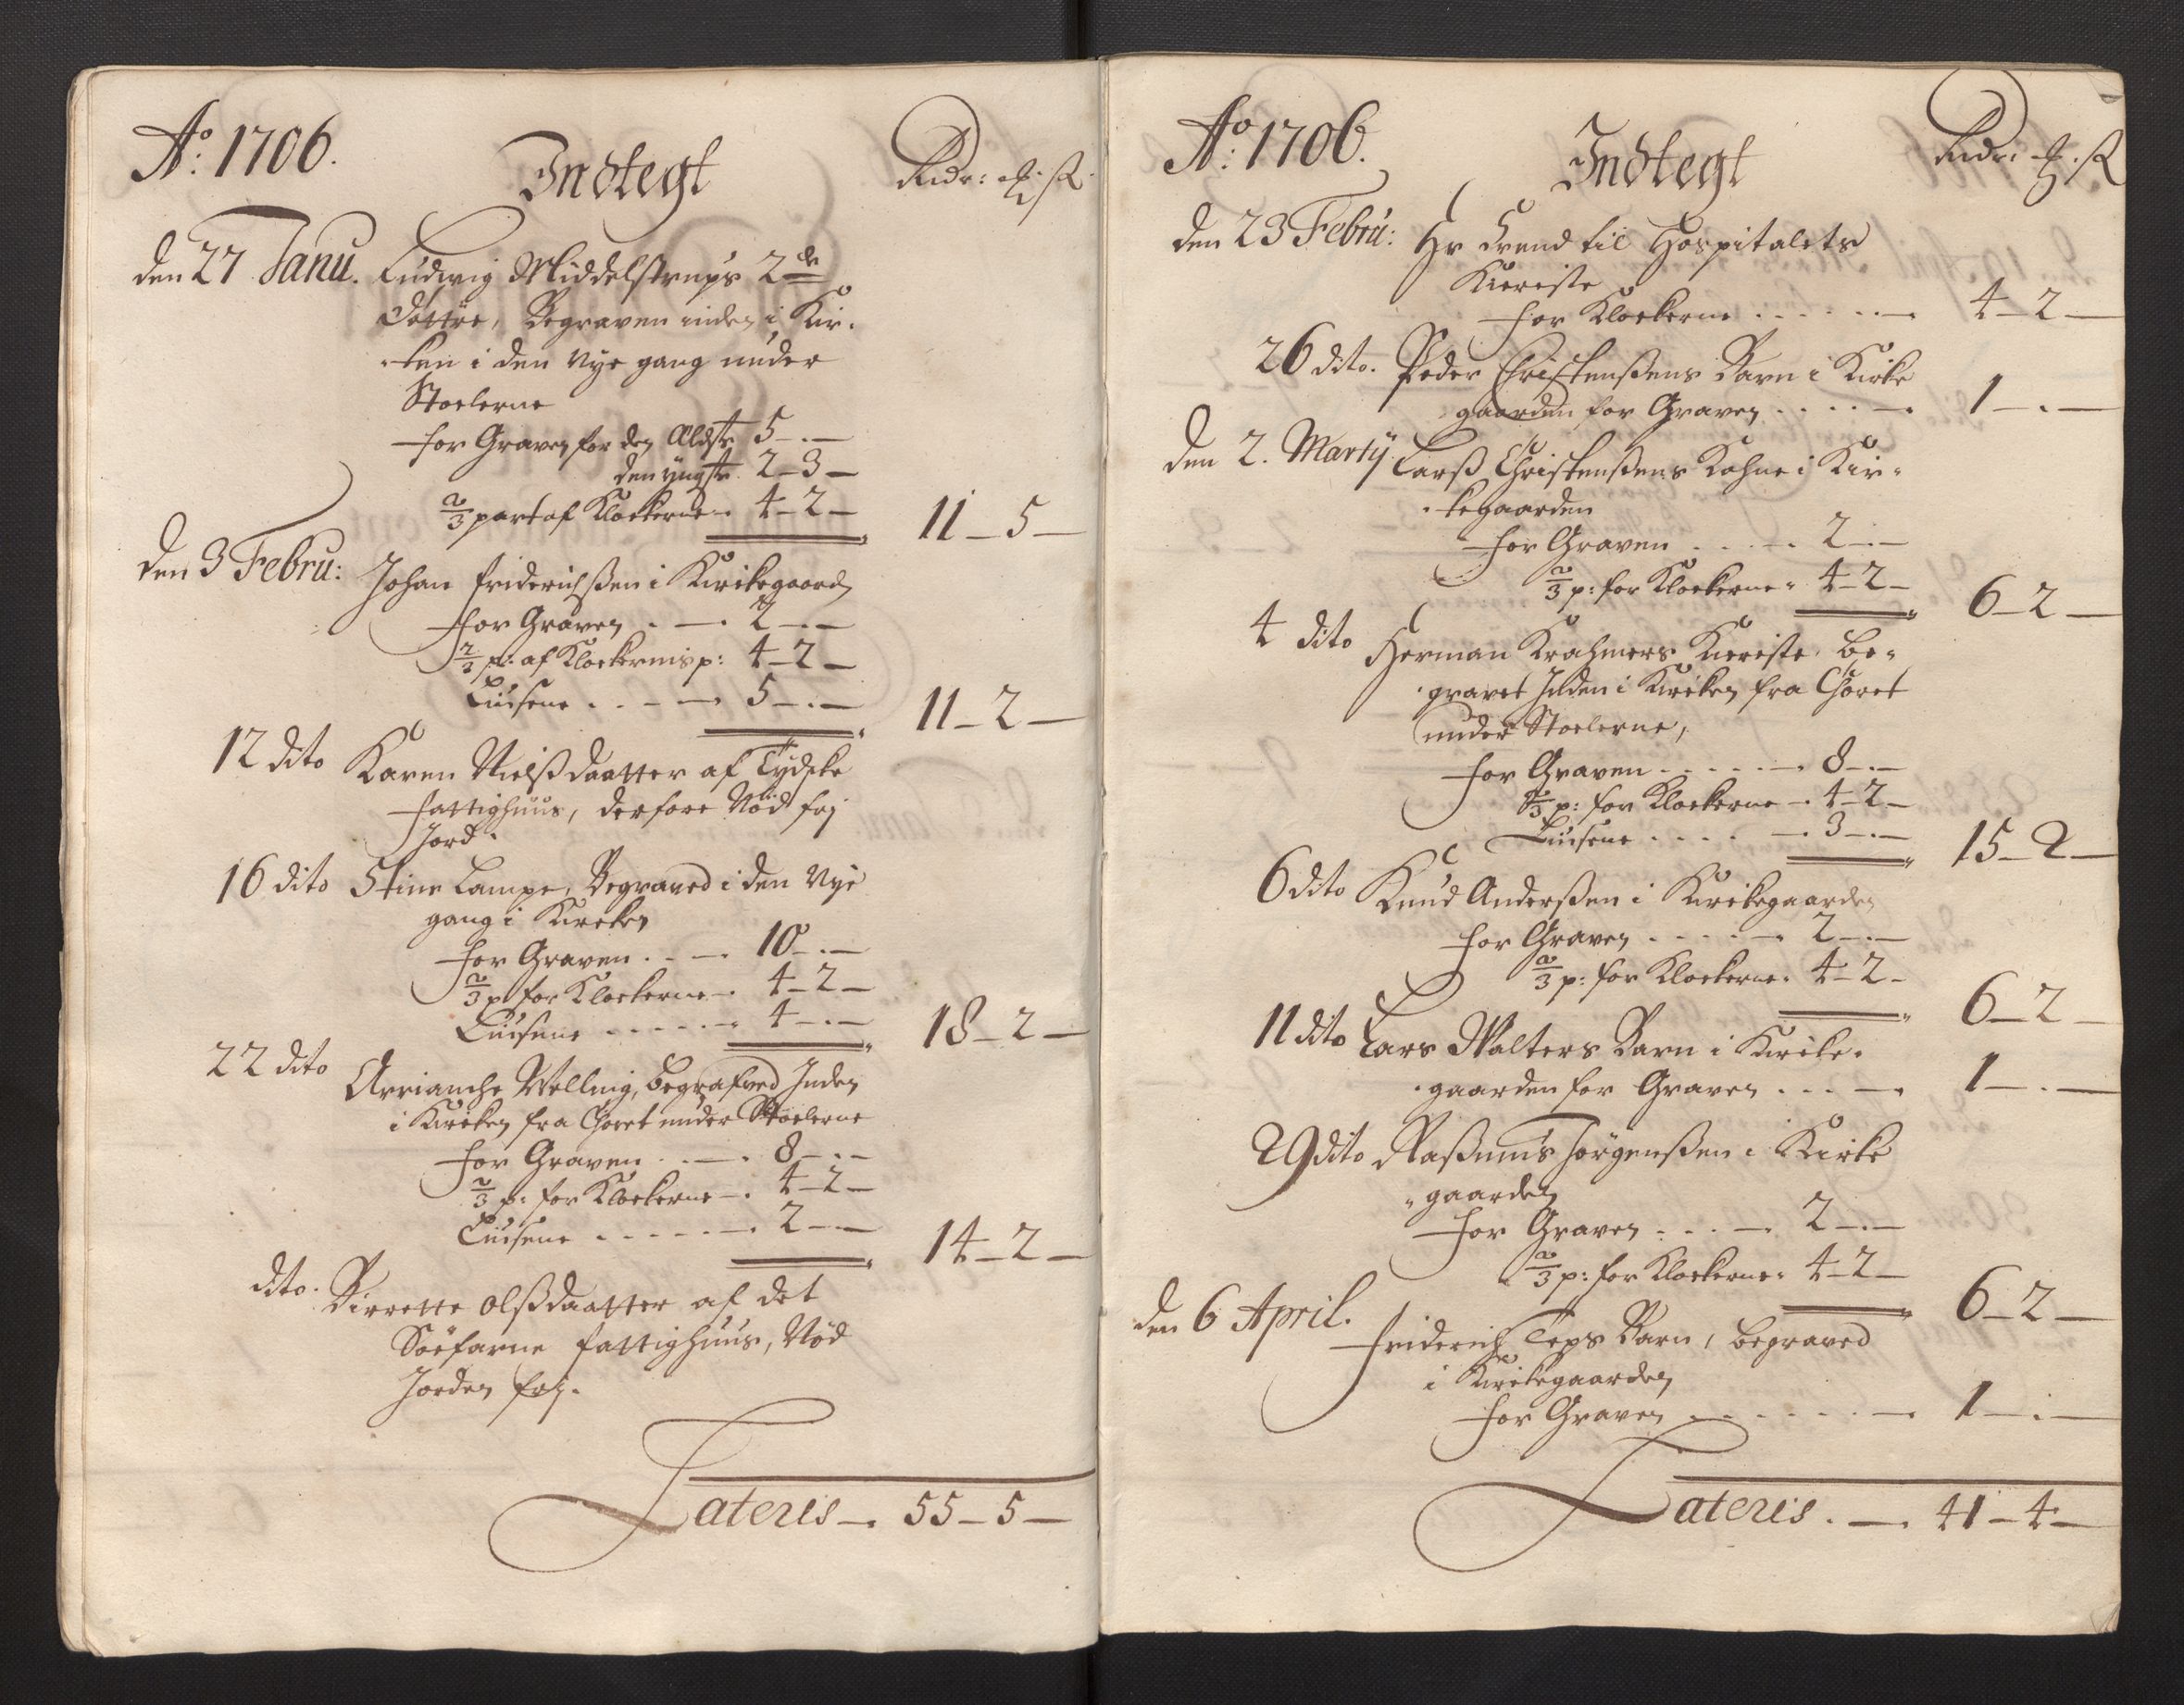 Ao: 1706.
Indtegt
Rdr: ꝳ: ß
den 27 Janu. Ludwig Middelstrups 2de
Döttre, Begraven inden i Kir-
-ken i den Nye gang under
Stoelerne
for Graven for den Ældste 5 – . –
den yngste 2 – 3 –
2/3 part af Klockerne – 4 – 2 –
11 – 5 –
den 3 Febru: Johan friderichßen i Kirkegaard
for Graven . – . 2 – . –
2/3 p: af Klockernis p: 4 – 2 –
Luisene . . – – . 5 – . –
11 – 2 –
12 dito Karen Nielßdaatter af Tydske
fattighuus, derfore Nöd frj
Jord.
16 dito Stine Lampe, Begraved i den Nye
gang i Kircken
for Graven . – – . 10 – . –
2/3 p for Klockerne – . 4 – 2 –
Luisene . . . . . . 4 – . –
18 – 2 –
22 dito Arrianche Welling, begrafved Inden
i Kircken fra Choret under Stoelerne
for Graven . – – . 8 – . –
2/3 p: for Klockerne – . 4 – 2 –
Luisene . . . . . – . 2 – . –
14 – 2 –
dito. Birrette Olßdaatter af det
Söefarne fattighuus, Nöd
Jorden frj.
Lateris – . 55 – 5 –
Ao: 1706.
Indtegt
Rdr: ꝳ: ß
den 23 Febru: Hr Trend til Hospitalets
Kiereste
for Klockerne . . . . . – . 4 – 2 –
26 dito. Peder Christenßens Barn i Kirke
gaarden for Graven . . . . – . 1 – . –
den 2. Martij Larß Christenßens Kohne i Kir-
-kegaarden
for Graven . . . – . 2 – . –
2/3 p: for Klockerne . 4 – 2 –
6 – 2 –
4 dito Herman Krahmers Kiereste, be-
-gravet Inden i Kircken fra Choret
under Stoelerne,
for Graven . . . . – . 8 – . –
2/3 p: for Klockerne – . 4 – 2 –
Luisene . . . . – . 3 – . –
15 – 2 –
6 dito Knud Anderßen i Kirkegaarden
for Graven . . . . – . 2 – . –
2/3 p: for Klockerne . 4 – 2 –
6 – 2 –
11 dito Lars Walters Barn i Kirke-
-gaarden for Graven . . . – . 1 – . –
29 dito Raßmus Jörgenßen i Kirke
-gaarden
for Graven . . . – . 2 – . –
2/3 p: for Klockerne . 4 – 2 –
6 – 2 –
den 6 April. friderich Teps Barn, begraved
i Kirkegaarden
for Graven . . . . . . – . 1 – . –
Lateris . – . 41 – 4 –